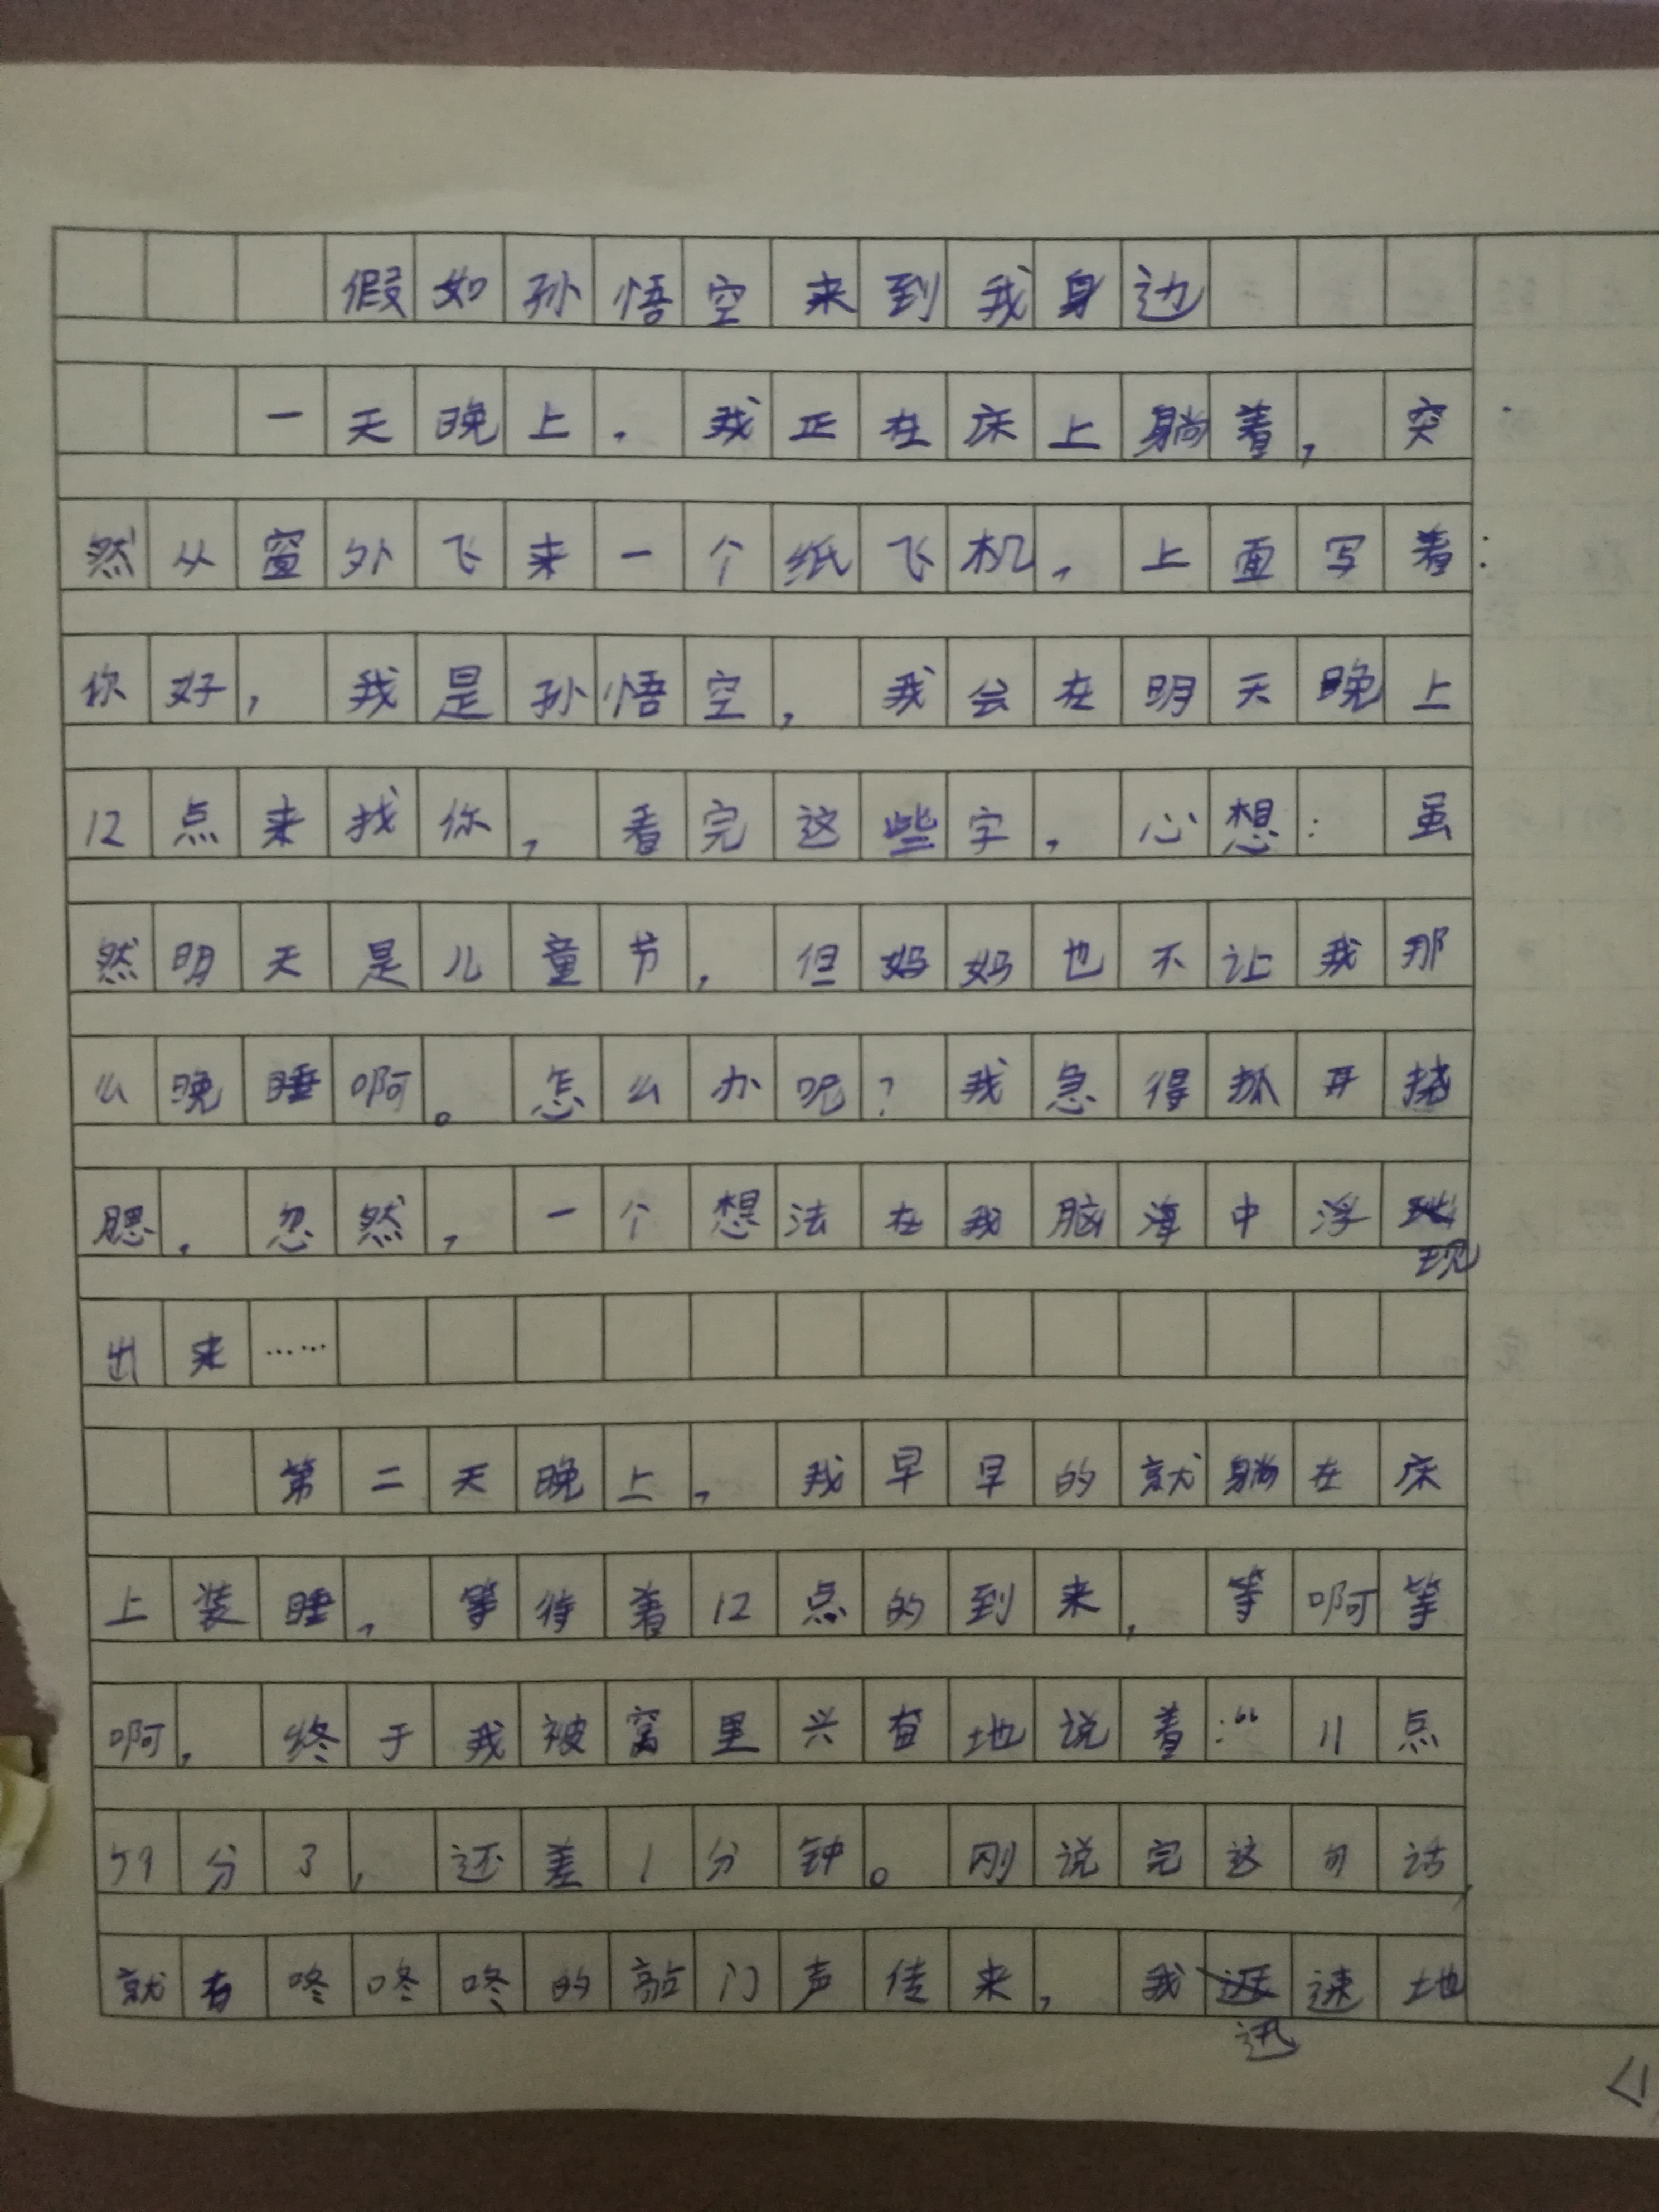 假如孙悟空来到我身边
一天晚上，我正在床上躺着，突
然从窗外飞来一个纸飞机，上面写着：
你好，我是孙悟空，我会在明天晚上
12点来找你，看完这些字，心想：虽
然明天是儿童节，但妈妈也不让我那
么晚睡啊。怎么办呢？我急得抓耳挠
腮，忽然，一个想法在我脑海中浮现
出来……
第二天晚上，我早早的就躺在床
上装睡，等待着12点的到来，等啊等
啊，终于我被窝里兴奋地说着：“11点
59分了，还差1分钟。刚说完这句话，
就有咚咚咚的敲门声传来，我迅速地